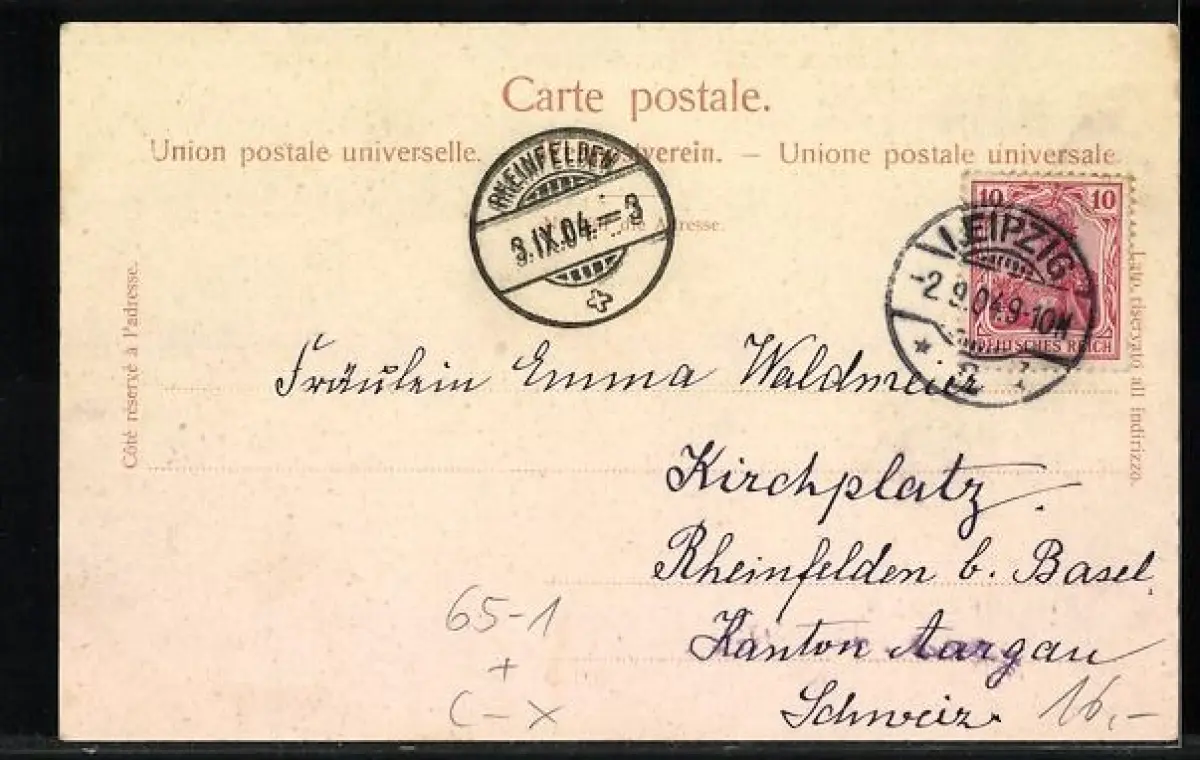 Carte postale.
Union postale universelle. verein. — Unione postale universale
RHEINFELDEN
3.IX.04.–3
die Adresse.
10 10
DEUTSCHES REICH
LEIPZIG
-2 9.04.9-10N
* 2
Côté réservé à l'adresse.
Lato riservato all indirizzo.
Fräulein Emma Waldmeier
Kirchplatz.
Rheinfelden b. Basel.
Kanton Aargau
Schweiz.
65-1
+
C-X
16,-